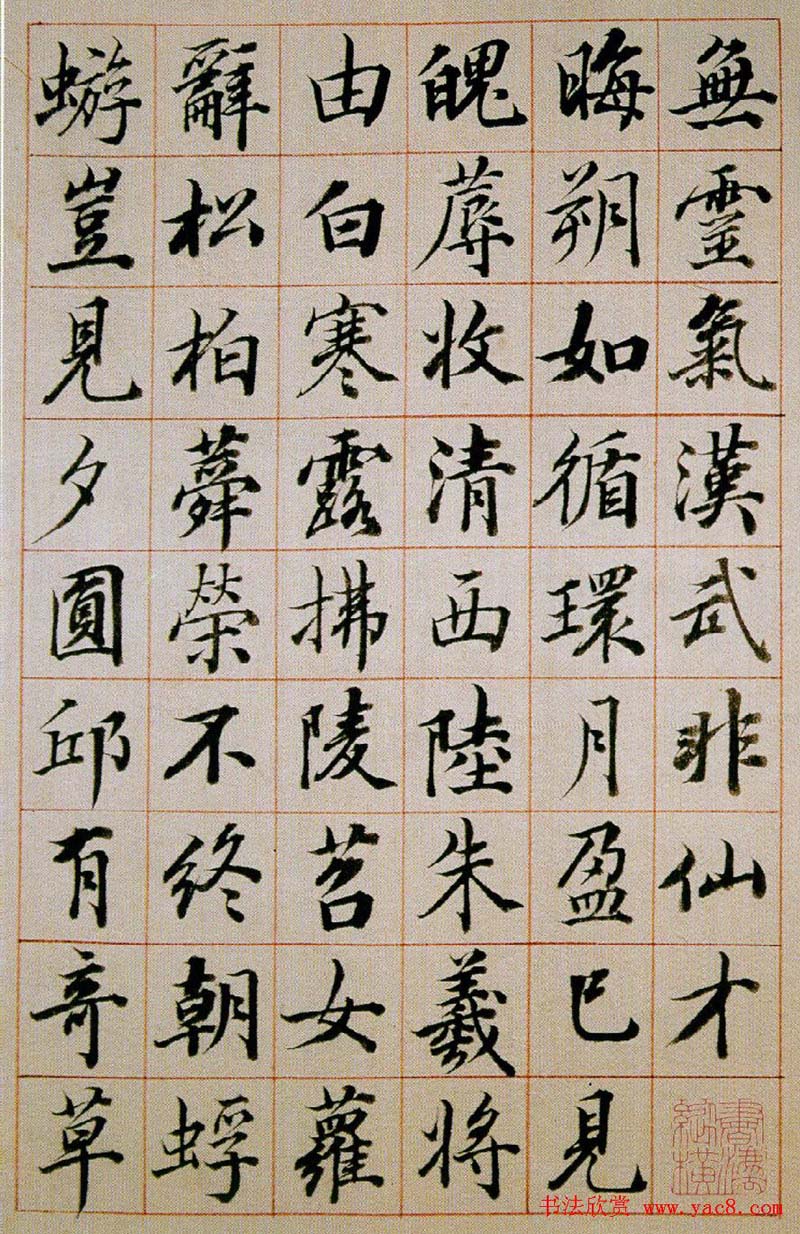 無靈氣漢武非仙才
晦朔如循環月盈已見
魄蓐收清西陸朱羲將
由白寒露拂陵苕女蘿
辭松柏蕣榮不終朝蜉
蝣豈見夕圓邱有奇草
书法欣赏 www.yac8.com